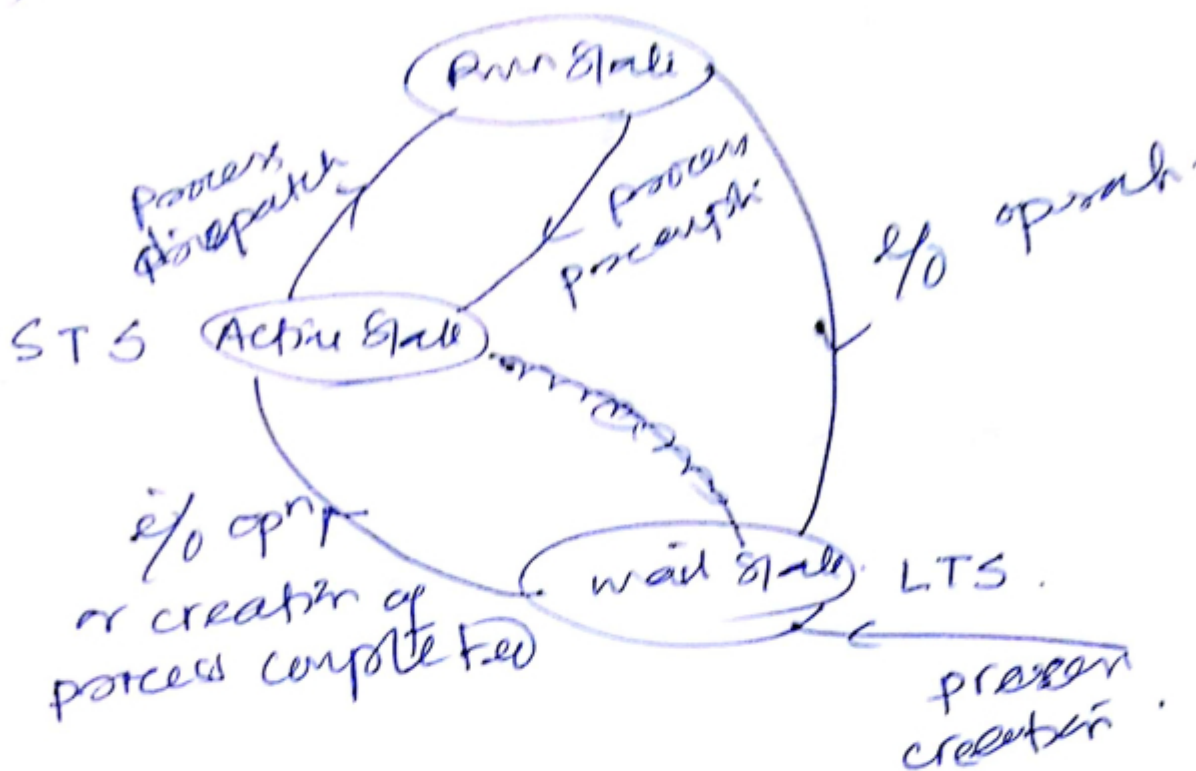 Run State
process
dispatch
process
preemption
I/O operatn.
STS Active State
I/O opn
or creation of
process completed
wait State LTS.
process
creation.